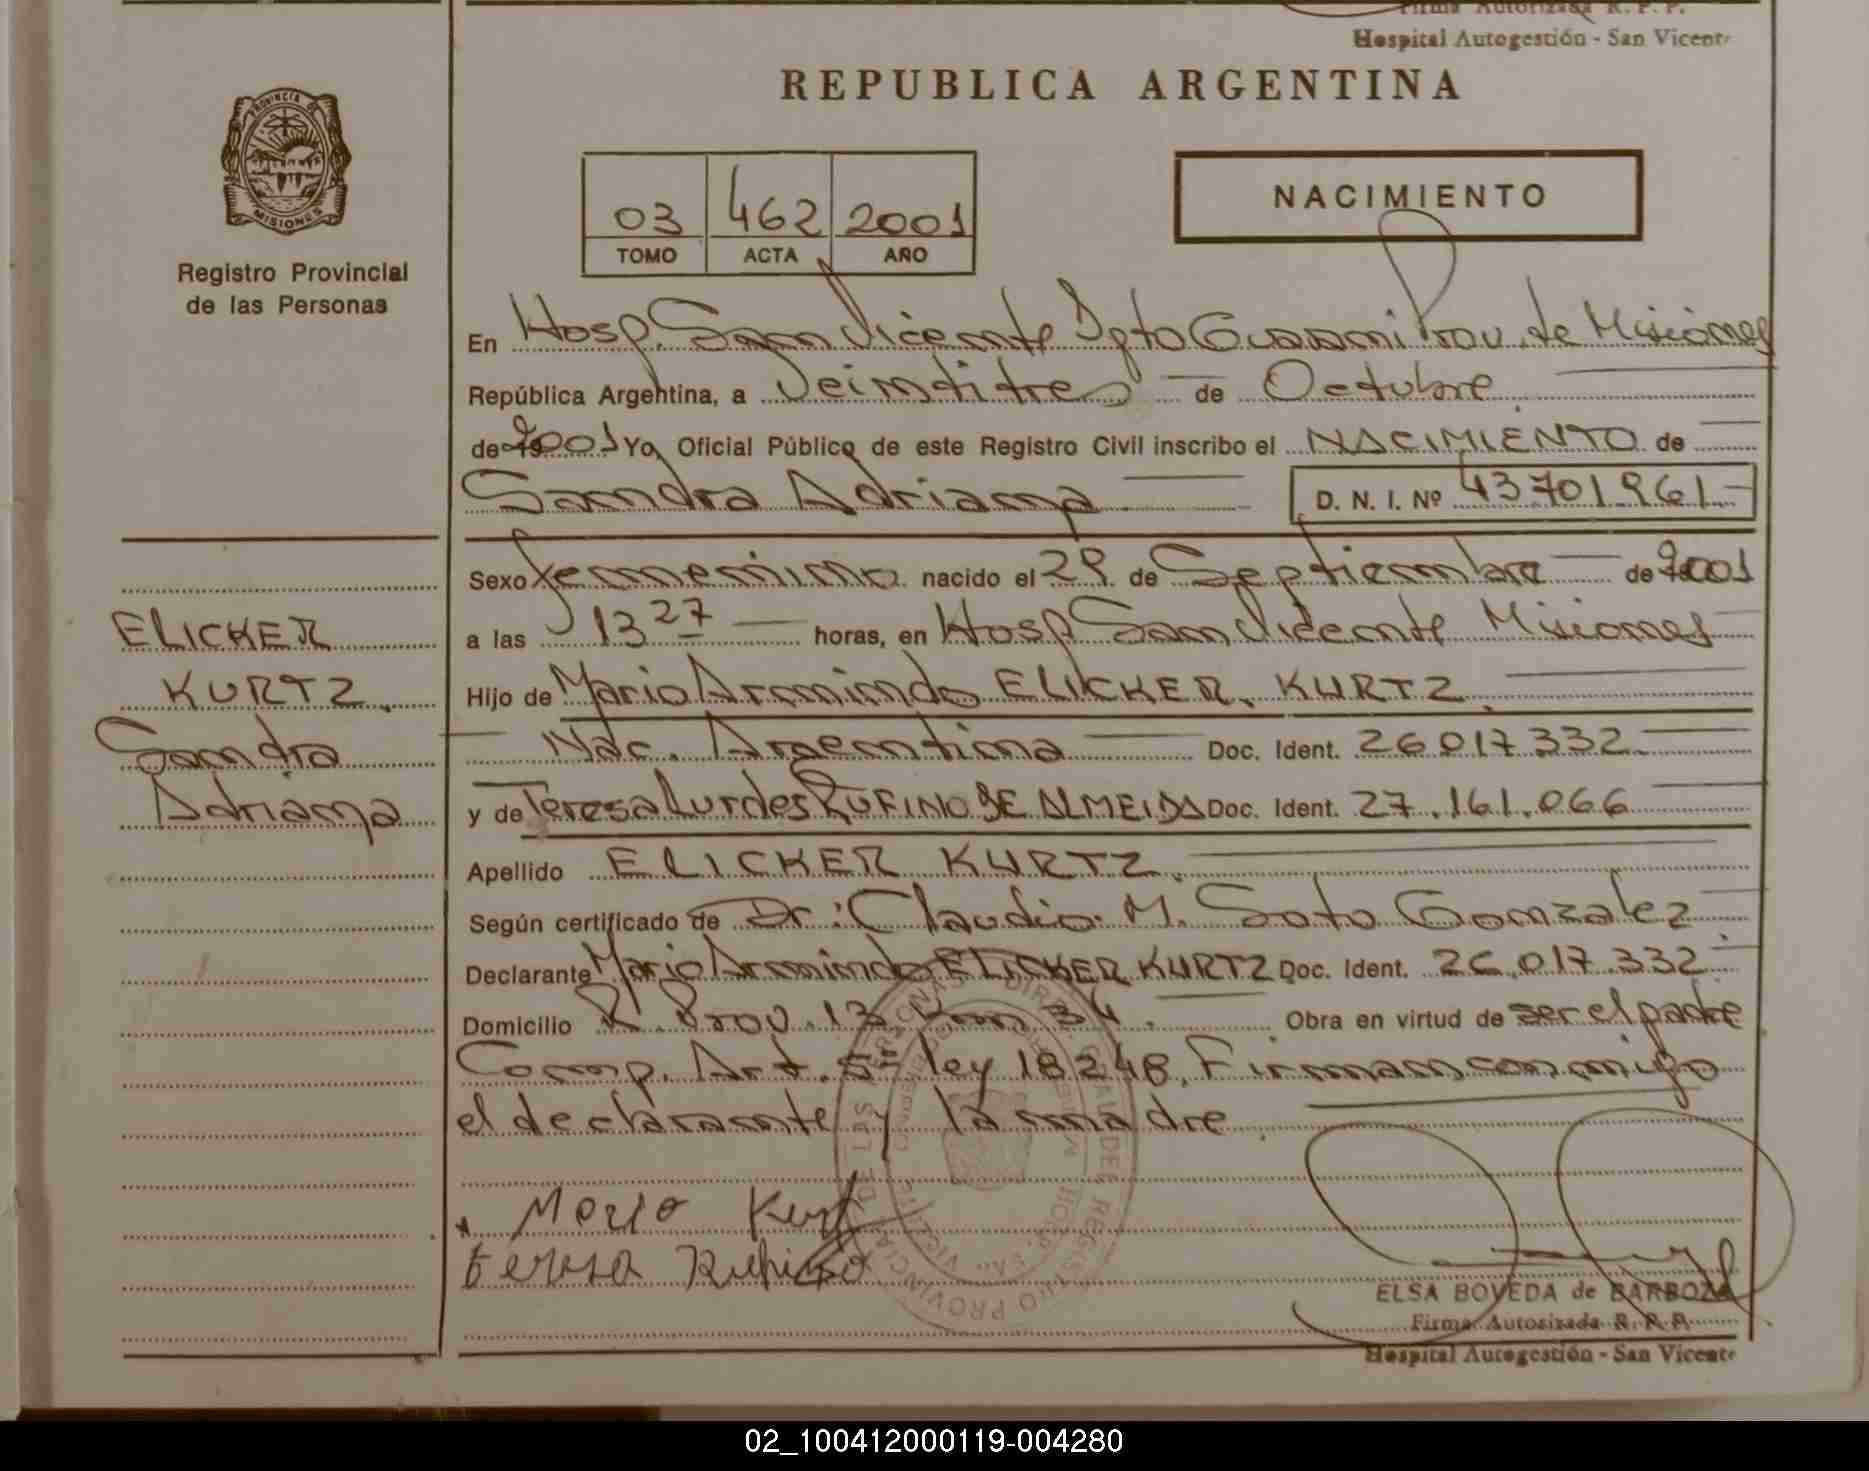 Firma Autorizada R. P. P.
Hospital Autogestión - San Vicente
REPUBLICA ARGENTINA
PROVINCIA DE
MISIONES
Registro Provincial
de las Personas
03 462 2001
TOMO ACTA AÑO
NACIMIENTO
En Hosp. San Vicente Dpto Guarani Prov. de Misiones
República Argentina, a Veintitres de Octubre
de 2001 Yo, Oficial Público de este Registro Civil inscribo el NACIMIENTO de
Sandra Adriana D. N. I. Nº 43701961
Sexo femenino nacido el 29 de Septiembre de 2001
a las 13 27 horas, en Hosp San Vicente Misiones
Hijo de Mario Armindo ELICKER KURTZ
Nac. Argentina Doc. Ident. 26017332
y de Teresa Lurdes RUFINO DE ALMEIDA Doc. Ident. 27.161.066
Apellido ELICKER KURTZ.
Según certificado de Dr: Claudio M. Soto Gonzalez
Declarante Mario Armindo ELICKER KURTZ Doc. Ident. 26.017.332
Domicilio R. Prov. 13 Km 34. Obra en virtud de ser el padre
Comp. Art. 5º ley 18248. Firman conmigo
el declarante y la madre.
ELICKER
KURTZ.
Sandra
Adriana
Mario Kurt
teresa Rufino
ELSA BOVEDA de BARBOZA
Firma Autorizada R. P. P.
Hospital Autogestión - San Vicente
02_100412000119-004280